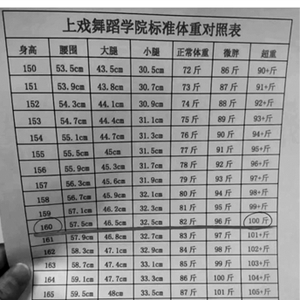 上戏舞蹈学院标准体重对照表
身高 腰围 大腿 小腿 正常体重 微胖 超重
150 53.5cm 43.5cm 30.5cm 72 斤 86 斤 90+斤
151 53.9cm 43.8cm 30.7cm 73 斤 87 斤 91+斤
152 54.3cm 44.1cm 30.9cm 74 斤 88 斤 92+斤
153 54.7cm 44.4cm 31.1cm 75 斤 89 斤 93+斤
154 55.1cm 44.7cm 31.3cm 76 斤 90 斤 94+斤
155 55.5cm 45cm 31.5cm 77 斤 91 斤 95+斤
156 55.9cm 45.3cm 31.7cm 78 斤 92 斤 96+斤
157 56.3cm 45.6cm 31.9cm 79 斤 93 斤 97+斤
158 56.7cm 45.9cm 32.1cm 80 斤 94 斤 98+斤
159 57.1cm 46.2cm 32.3cm 81 斤 95 斤 99+斤
160 57.5cm 46.5cm 32.5cm 82 斤 96 斤 100 斤
161 57.9cm 46.8cm 32.7cm 83 斤 97 斤 101+斤
162 58.3cm 47.1cm 32.9cm 84 斤 98 斤 102+斤
163 58.7cm 47.4cm 33.1cm 85 斤 99 斤 103+斤
164 59.1cm 47.7cm 33.3cm 86 斤 100 斤 104+斤
165 59.5cm 48cm 33.5cm 87 斤 101 斤 105+斤